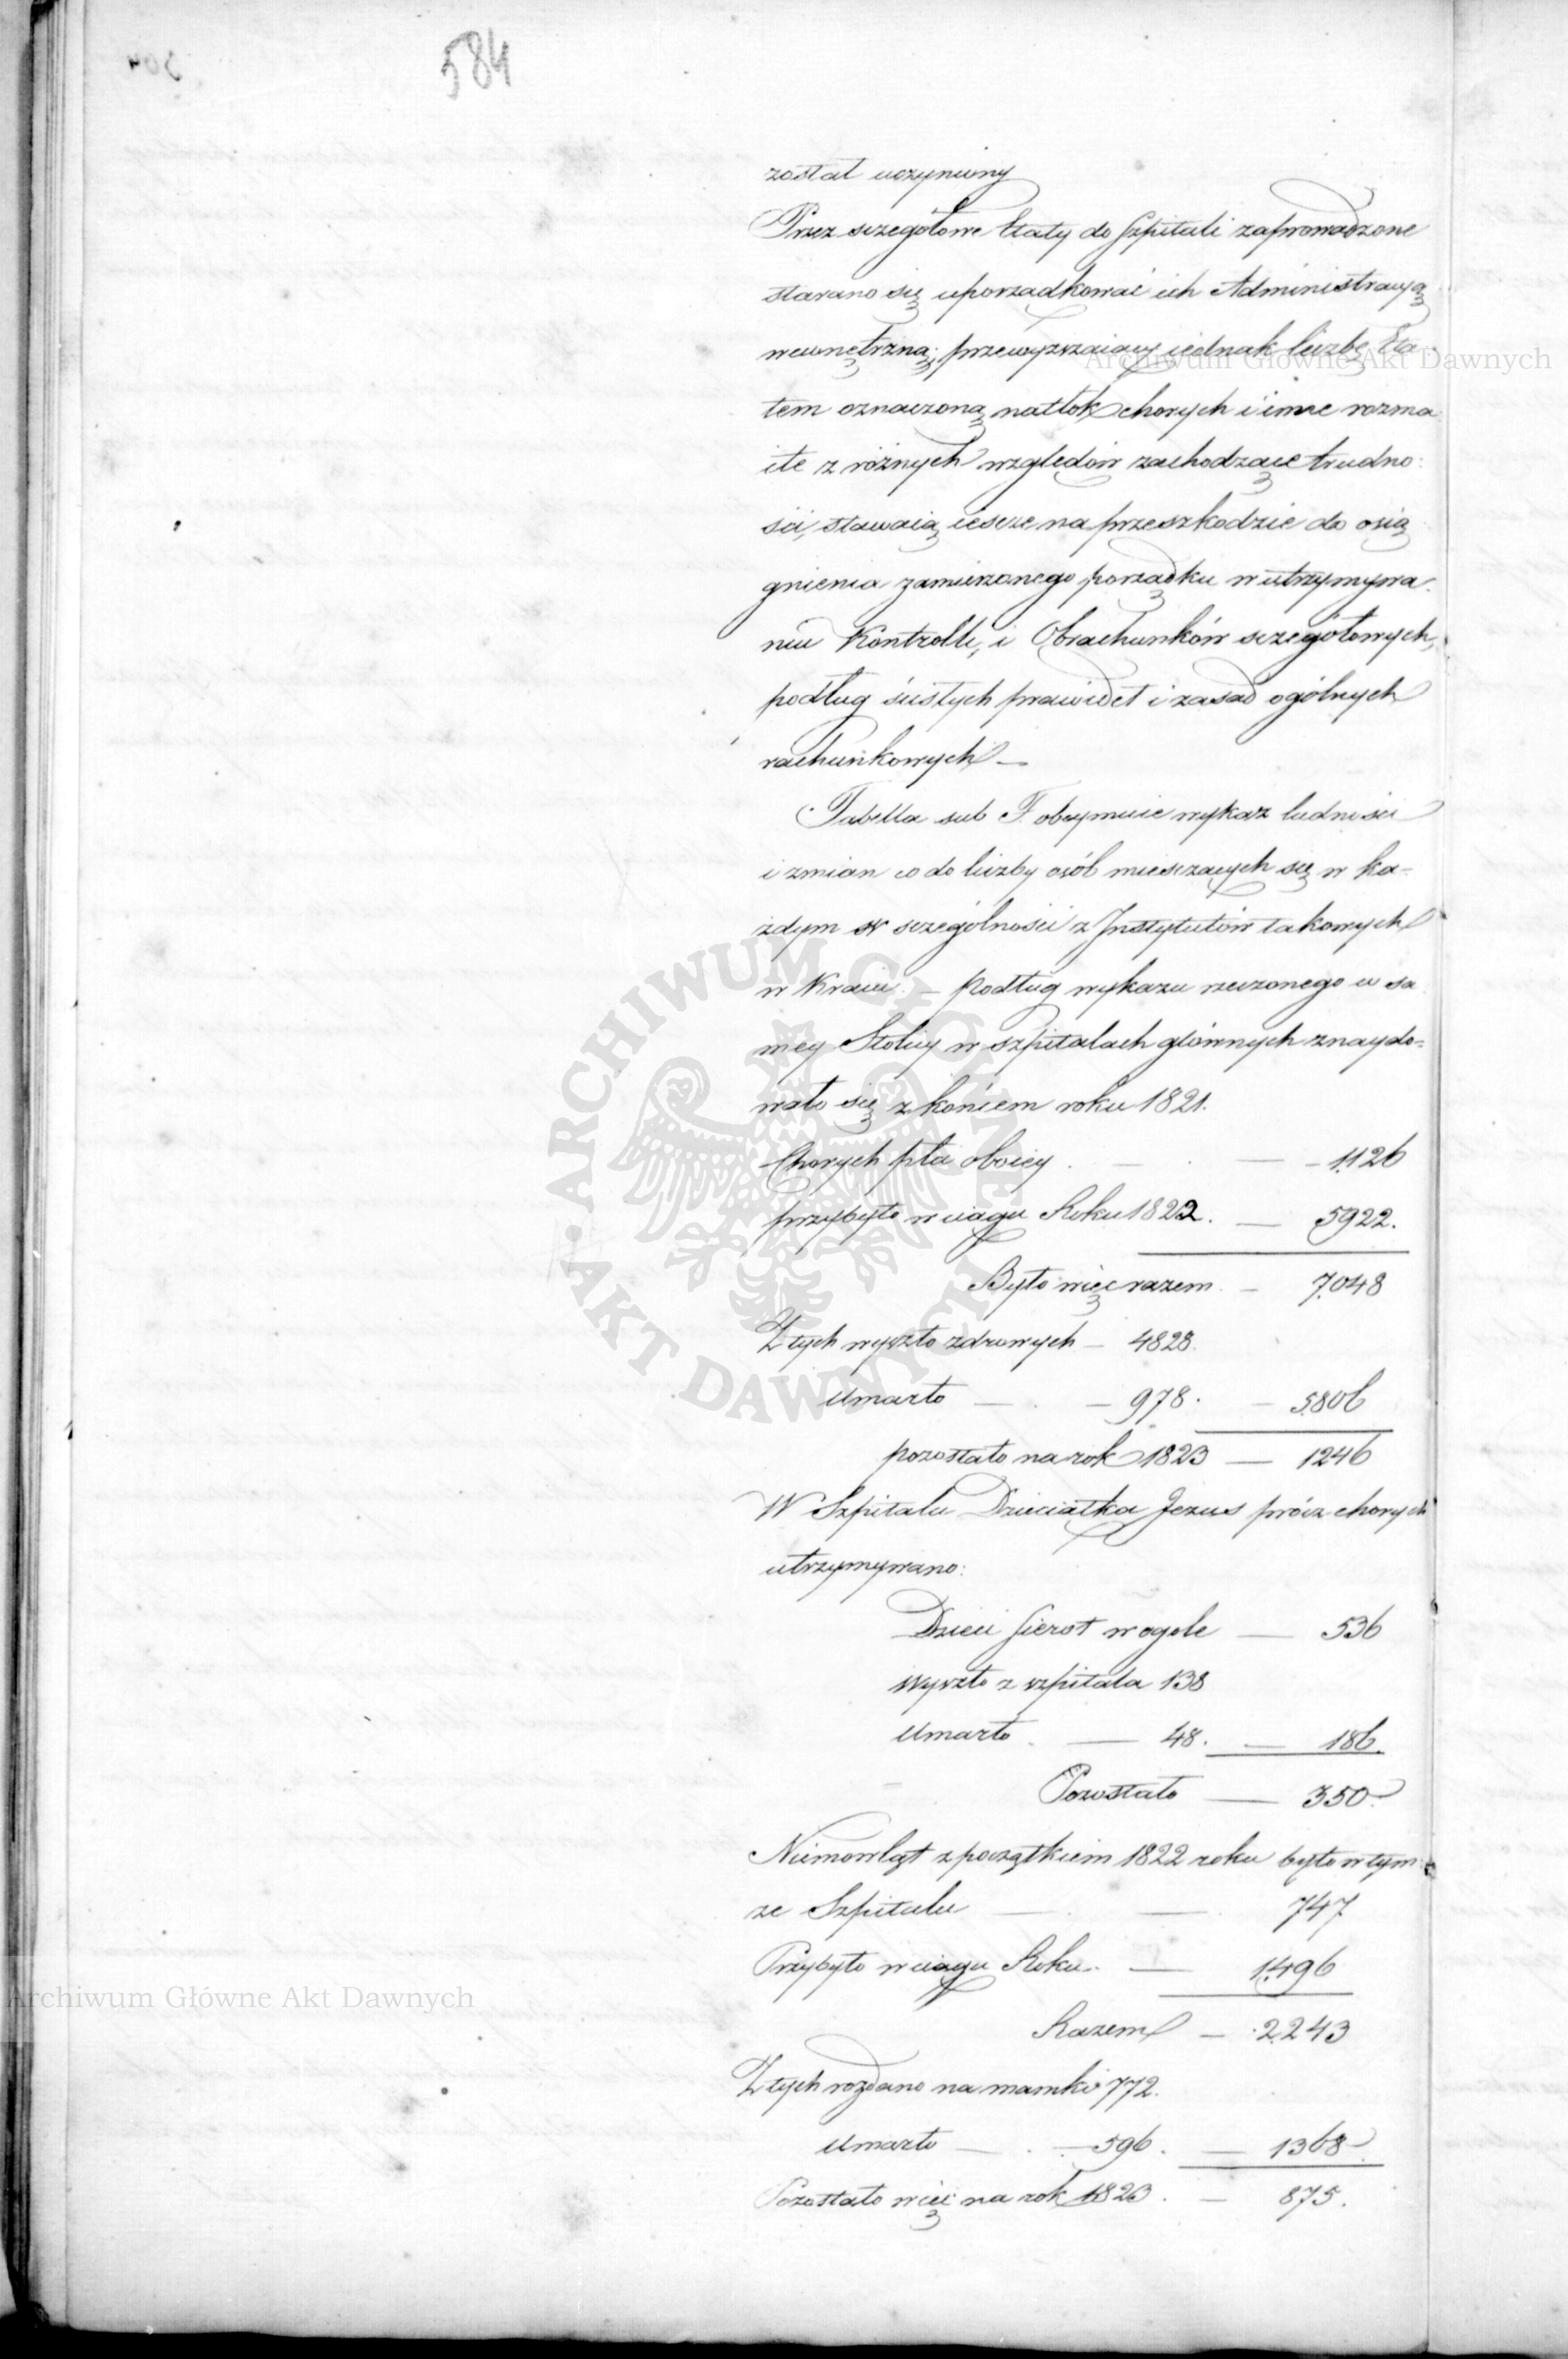 584
został uczyniony
Przez szczegółowe Etaty do Szpitali zaprowadzone
starano się uporządkować ich Administracyą
wewnętrzną; przewyższaiący iednak liczbę Eta-
tem oznaczoną natłok chorych i inne rozma
ite z różnych względów zachodzące trudno:
ści, stawaią ieszcze na przeszkodzie do osią
gnienia zamierzonego porządku w utrzymywa-
niu Kontrolli, i Obrachunków szczegółowych,
podług ścisłych prawideł i zasad ogólnych
rachunkowych —
Tabella sub F. obeymuie wykaz ludności
i zmian co do liczby osób mieszczących się w ka-
żdym w szczególności z Instytutów takowych
w Kraiu. — Podług wykazu rzeczonego w sa
mey Stolicy w szpitalach głównych znaydo-
wało się z końcem roku 1821.
Chorych płci oboiey . — . — 1126
przybyło w ciągu Roku 1822. — 5922.
Było więc razem — 7.048
Z tych wyszło zdrowych — 4828.
Umarło — . — 978. — 5.806
pozostało na rok 1823 — 1246
W Szpitalu Dzieciątka Jezus prócz chorych
utrzymywano:
Dzieci Sierot w ogóle — 536
Wyszło z szpitala 138
Umarło . — 48. — 186.
Pozostało — 350.
Niemowląt z początkiem 1822 roku było w tym-
że Szpitalu — . — 747
Przybyło w ciągu Roku. — 1.496
Razem — 2.243
Z tych rozdano na mamki 772.
Umarło — . — 596. — 1368.
Pozostało więc na rok 1823. — 875.
Archiwum Główne Akt Dawnych
Archiwum Główne Akt Dawnych
ARCHIWUM GŁÓWNE • AKT DAWNYCH •